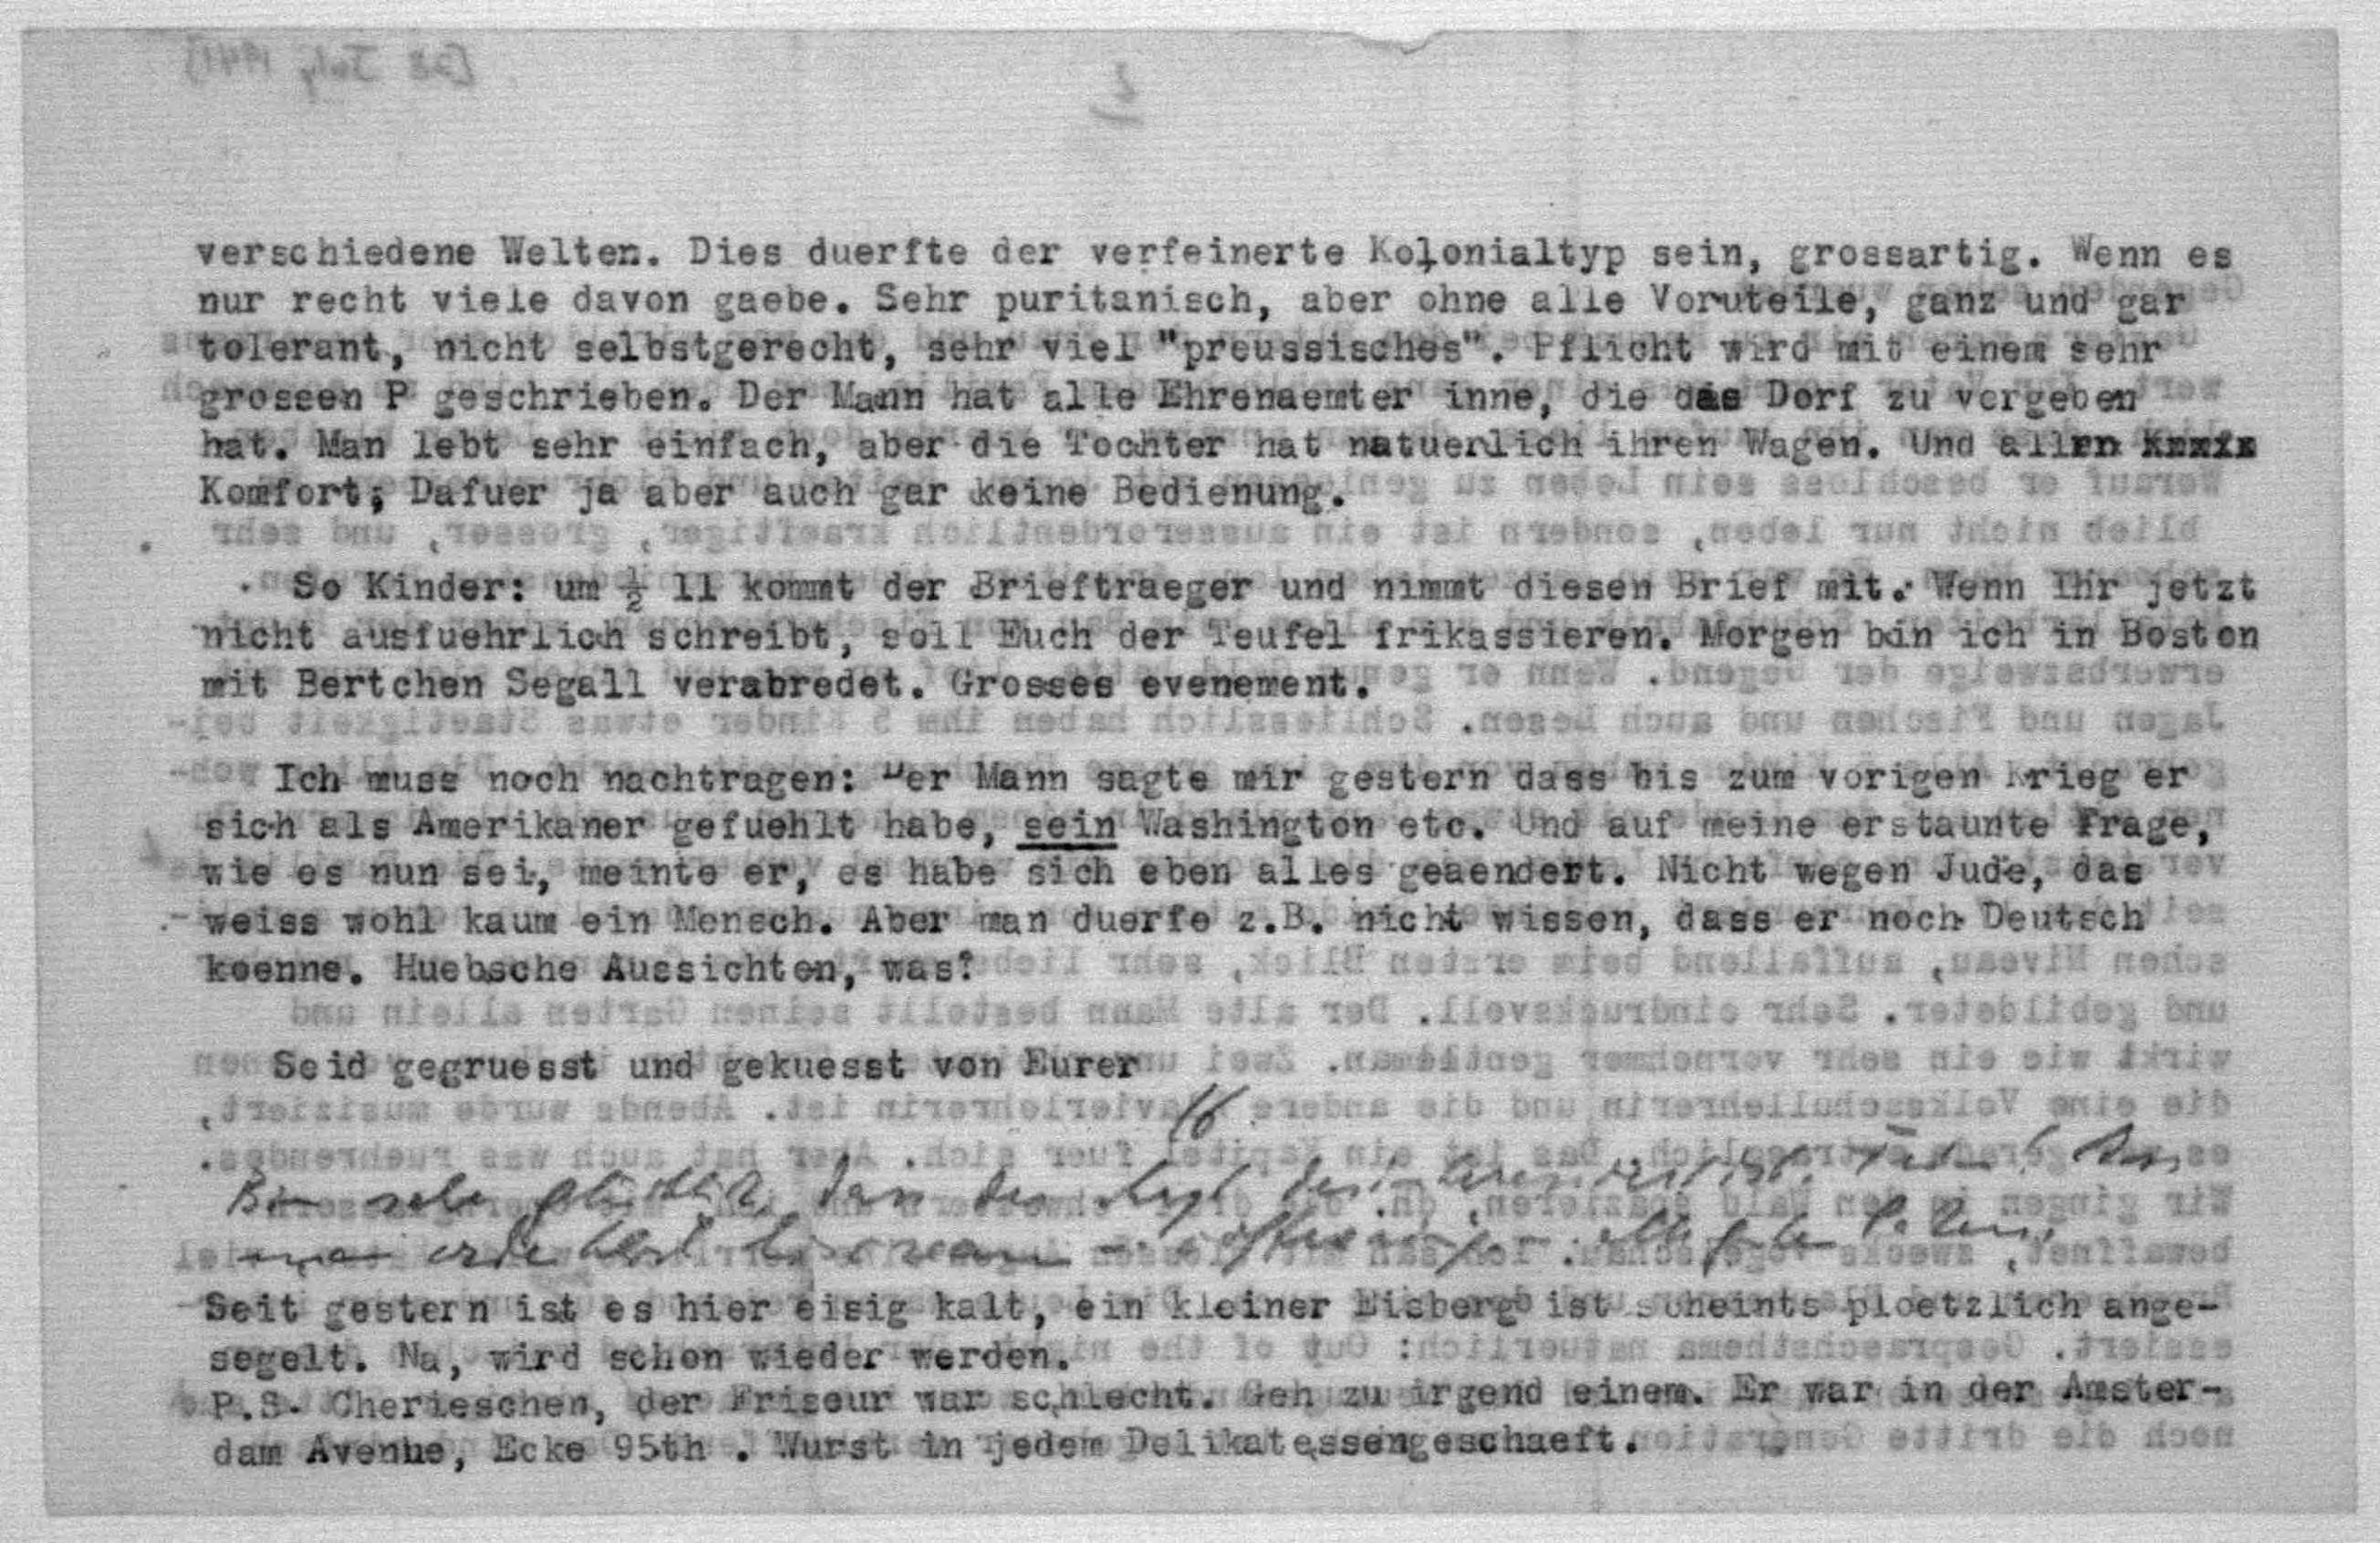 verschiedene Welten. Dies duerfte der verfeinerte Kolonialtyp sein, grossartig. Wenn es
nur recht viele davon gaebe. Sehr puritanisch, aber ohne alle Voruteile, ganz und gar
tolerant, nicht selbstgerecht, sehr viel "preussisches". Pflicht wird mit einem sehr
grossen P geschrieben. Der Mann hat alle Ehrenaemter inne, die das Dorf zu vergeben
hat. Man lebt sehr einfach, aber die Tochter hat natuerlich ihren Wagen. Und allen
Komfort; Dafuer ja aber auch gar keine Bedienung.
So Kinder: um ½ 11 kommt der Brieftraeger und nimmt diesen Brief mit. Wenn Ihr jetzt
nicht ausfuehrlich schreibt, soll Euch der Teufel frikassieren. Morgen bin ich in Boston
mit Bertchen Segall verabredet. Grosses evenement.
Ich muss noch nachtragen: Der Mann sagte mir gestern dass bis zum vorigen Krieg er
sich als Amerikaner gefuehlt habe, sein Washington etc. Und auf meine erstaunte Frage,
wie es nun sei, meinte er, es habe sich eben alles geaendert. Nicht wegen Jude, das
weiss wohl kaum ein Mensch. Aber man duerfe z.B. nicht wissen, dass er noch Deutsch
koenne. Huebsche Aussichten, was?
Seid gegruesst und gekuesst von Eurer
Bin sehr
Seit gestern ist es hier eisig kalt, ein kleiner Eisberg ist scheints ploetzlich ange-
segelt. Na, wird schon wieder werden.
P.S. Cherieschen, der Friseur war schlecht. Geh zu irgend einem. Er war in der Amster-
dam Avenue, Ecke 95th . Wurst in jedem Delikatessengeschaeft.